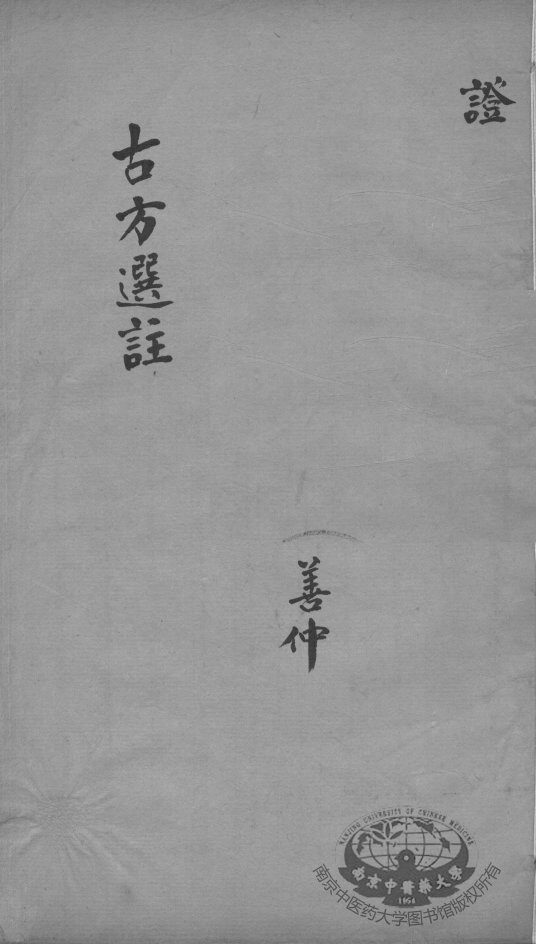 證
善仲
古方選註
NANJING UNIVERSITY OF CHINESE MEDICINE
南京中醫藥大學
1954
南京中医药大学图书馆版权所有